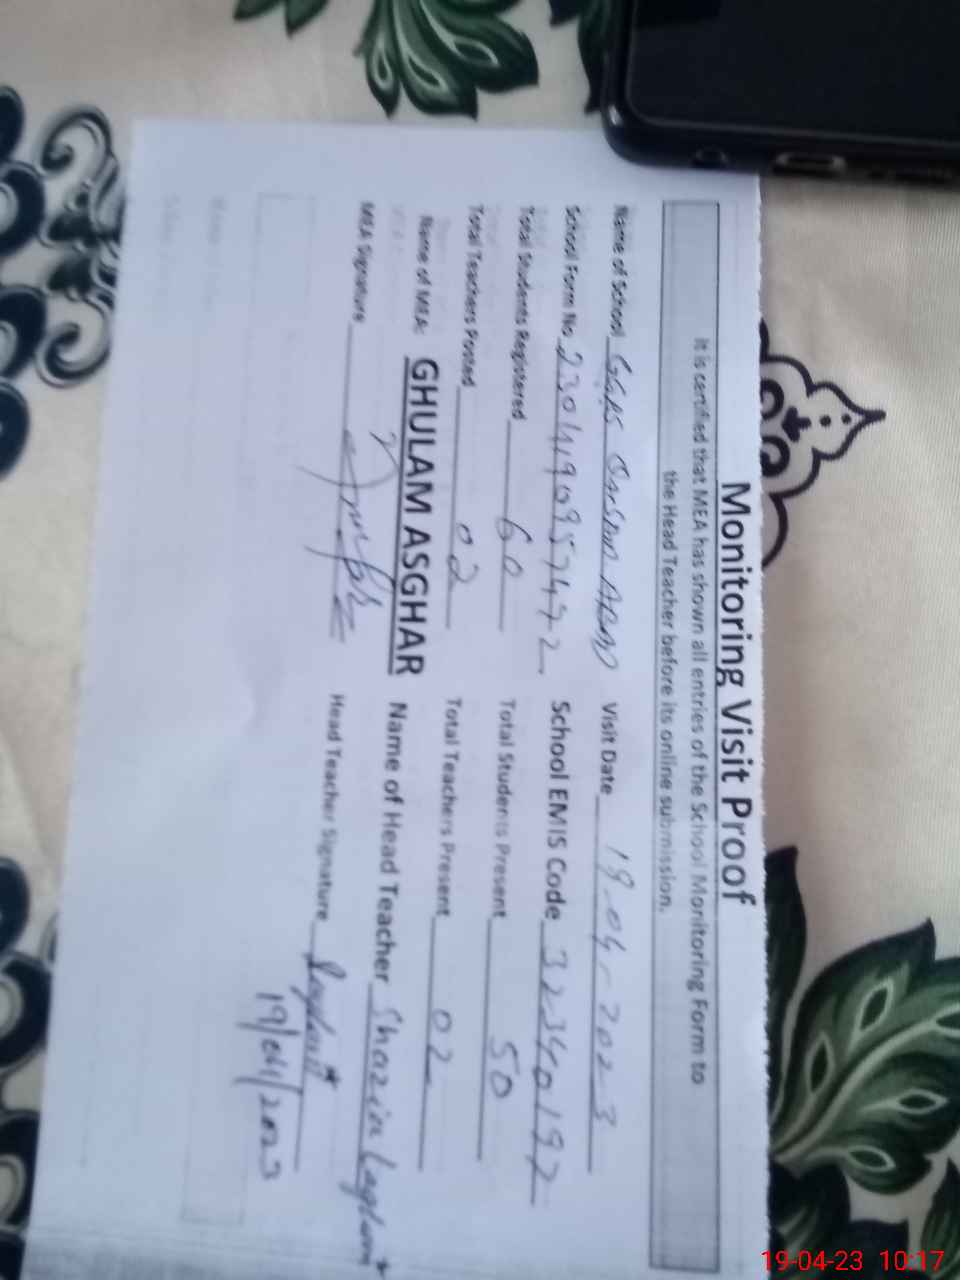 Monitoring Visit Proof
It is certified that MEA has shown all entries of the School Monitoring Form to
the Head Teacher before its online submission.
Name of School GGPS Visit Date 19-04-2023
School Form No School EMIS Code 32340197
Total Students Registered 60 Total Students Present 50
Total Teachers Posted 02 Total Teachers Present 02
Name of MEA: GHULAM ASGHAR Name of Head Teacher Shazia
MEA Signature Head Teacher Signature
19/04/2023
19-04-23 10:17